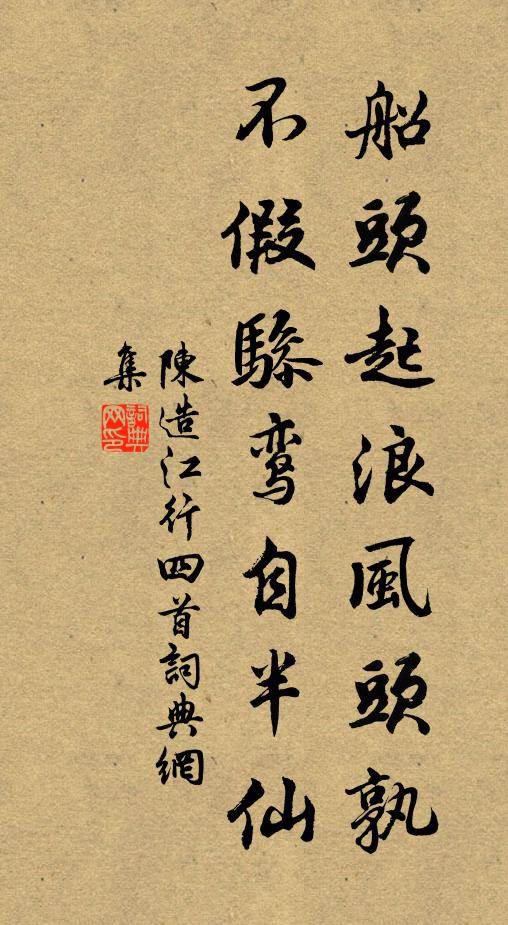 船頭起浪風頭孰
不假驂鸾自半仙
陳造江行四首詞典網
集
詞典
网印